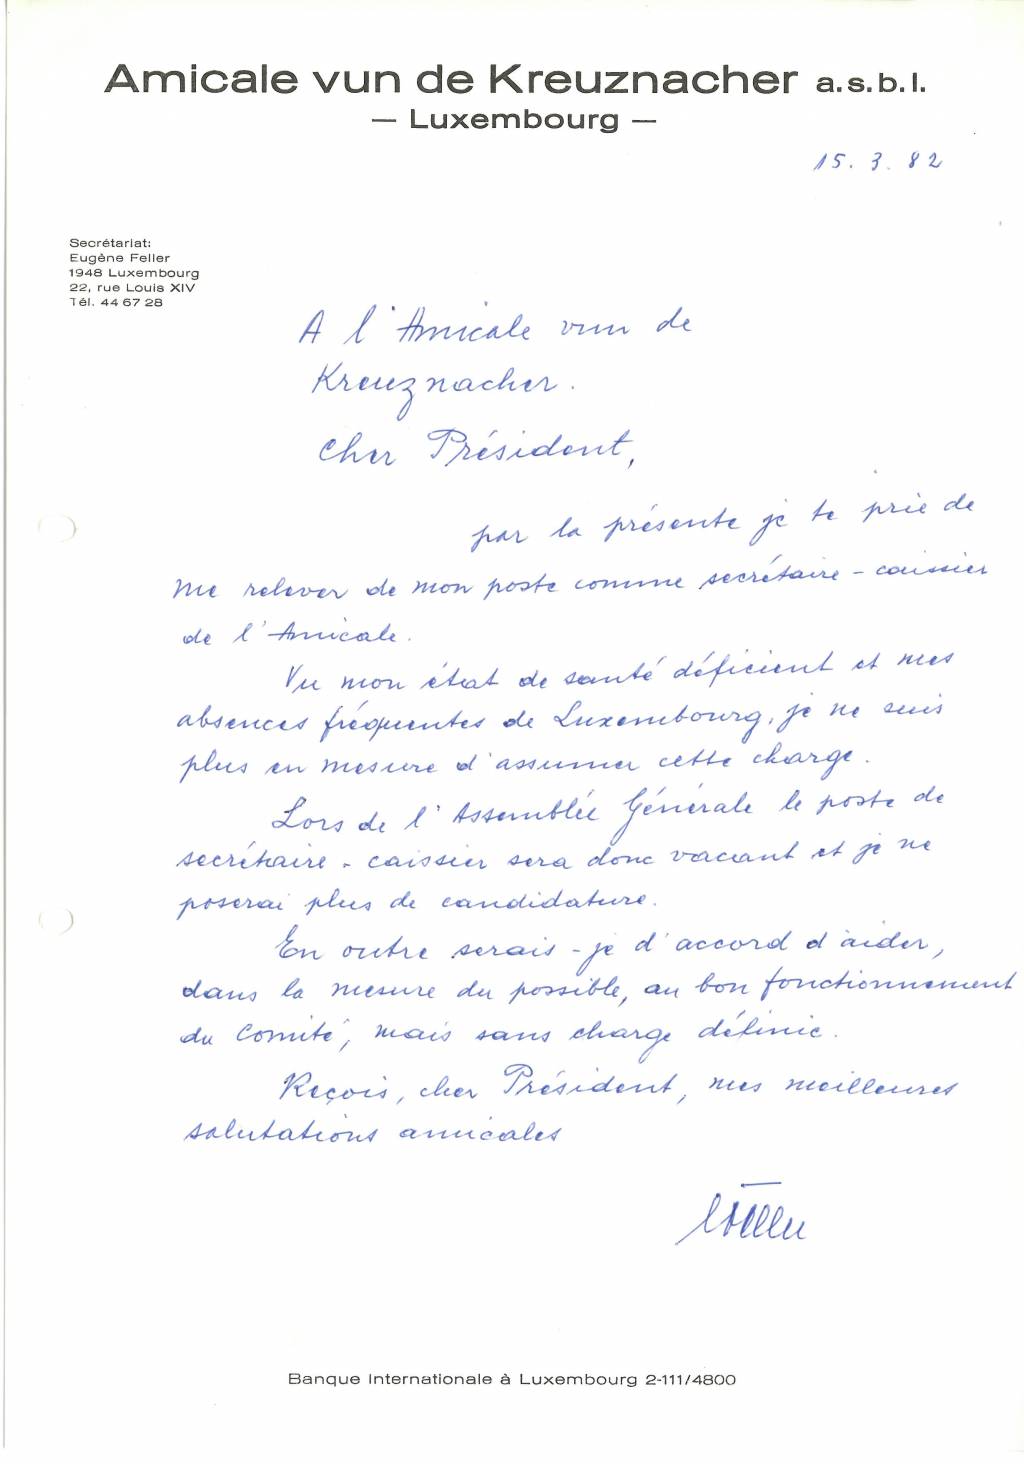 Amicale vun de Kreuznacher a.s.b.l.
— Luxembourg —
15. 3. 82
Secrétariat:
Eugène Feller
1948 Luxembourg
22, rue Louis XIV
Tél. 44 67 28
A l'Amicale vun de
Kreuznacher.
Cher Président,
par la présente je te prie de
me relever de mon poste comme secrétaire - caissier
de l'Amicale.
Vu mon état de santé déficient et mes
absences fréquentes de Luxembourg, je ne suis
plus en mesure d'assumer cette charge.
Lors de l'Assemblée Générale le poste de
secrétaire - caissier sera donc vacant et je ne
poserai plus de candidature.
En outre serais-je d'accord d'aider,
dans la mesure du possible, au bon fonctionnement
du Comité, mais sans charge définie.
Reçois, cher Président, mes meilleures
salutations amicales
Banque Internationale à Luxembourg 2-111/4800